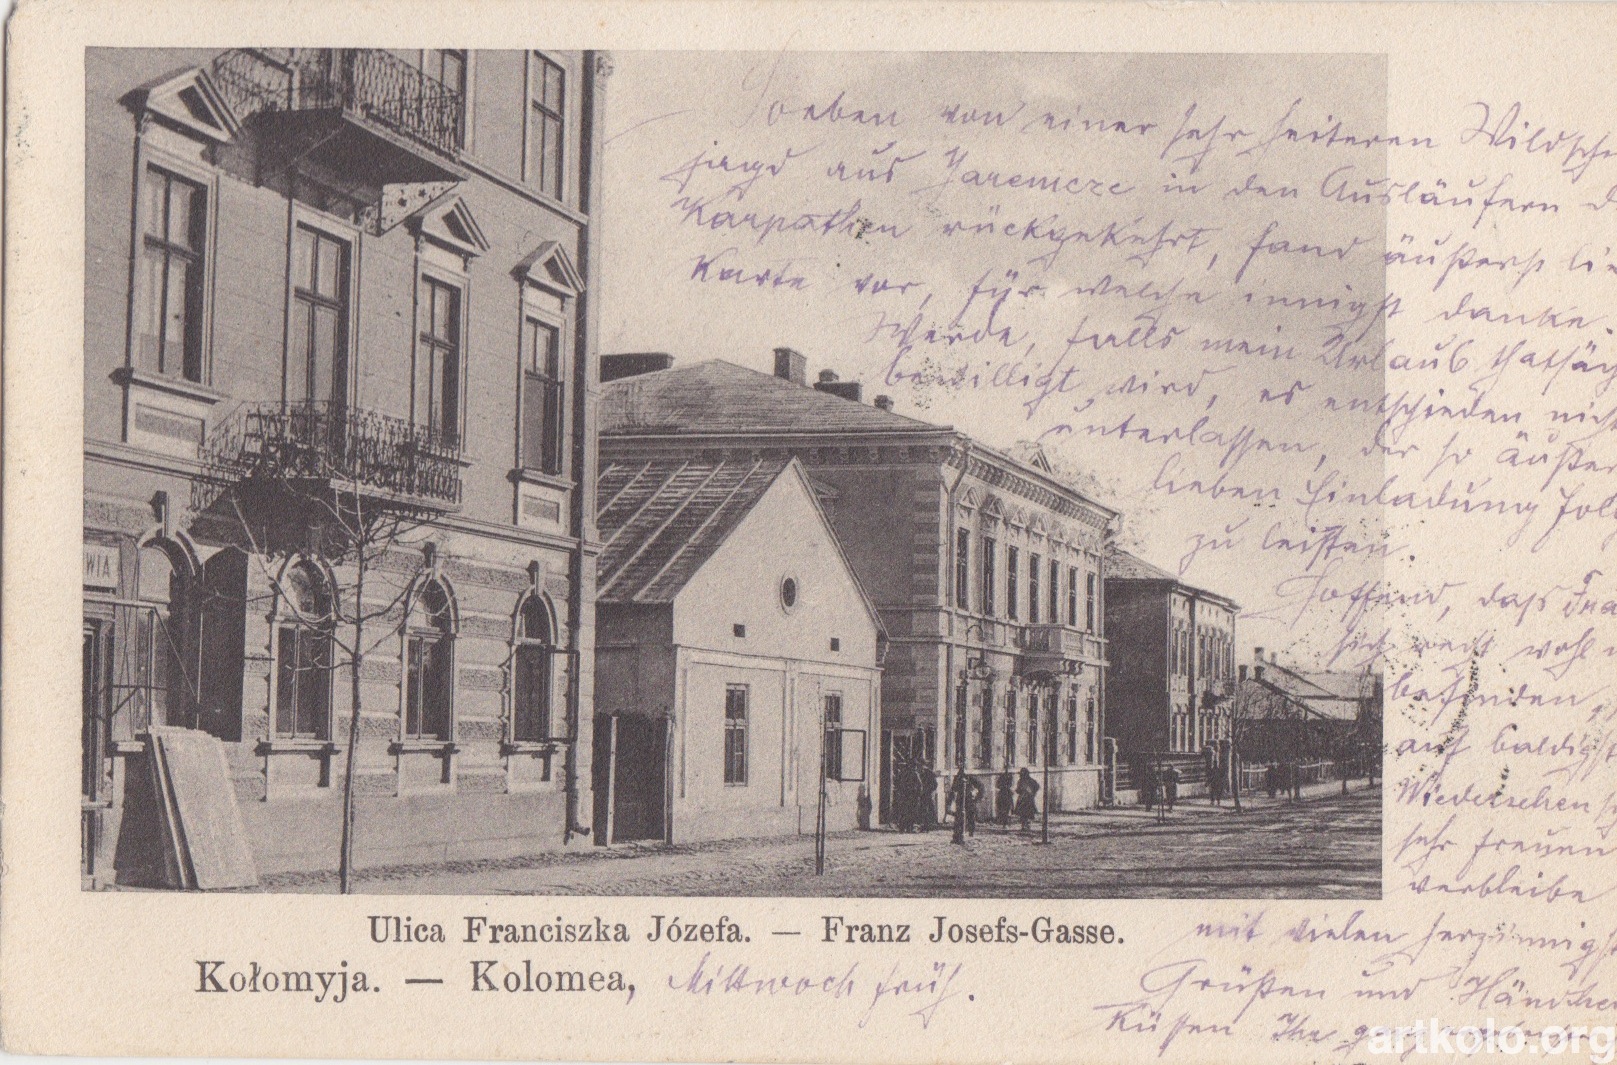 Soeben von einer sehr heiteren Wildsch
jagd aus Jaremcze in den Ausläufern d
Karpathen rückgekehrt, fand äußerst lie
Karte vor, für welche innigst danke.
Werde, falls mein Urlaub thatsäch
bewilligt wird, es entschieden nicht
unterlassen, der so äußer
lieben Einladung Folg
zu leisten.
Hoffend, dass Fra
sich recht wohl
befinden,
auf baldigst
Wiedersehen
sehr freuen
verbleibe
mit vielen herzinnigst
Grüßen und Händ
Küssen Ihr
WIA
Ulica Franciszka Józefa. — Franz Josefs-Gasse.
Kołomyja. — Kolomea, Mittwoch früh.
artkolo.org